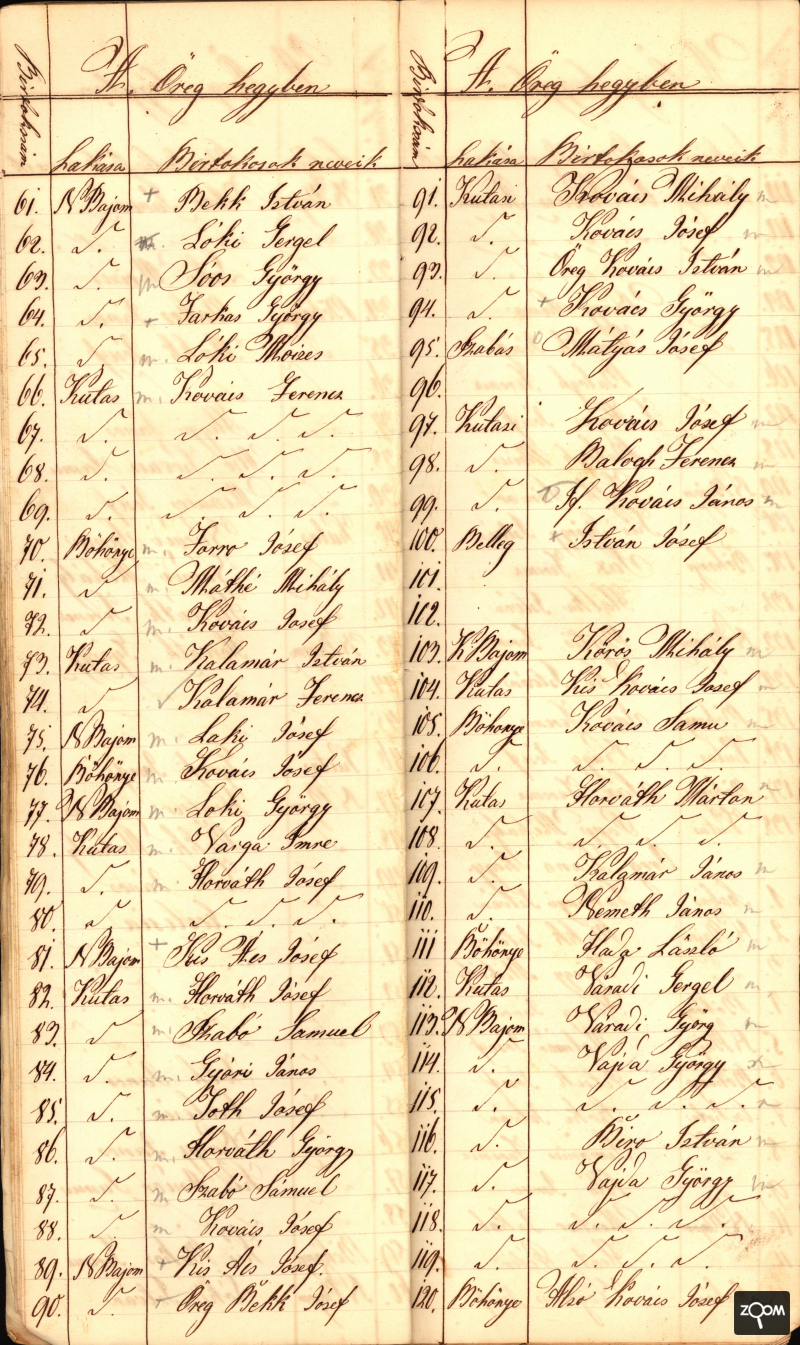 Birtokszám
A. Öreg hegyben
lakása Birtokosok neveik
61. N Bajom + Bekk István
62. d. m. Lóki Gergel
63. d. m Soos György
64. d. + Farkas György
65. d. m. Lóki Moizes
66. Kutas m. Kovács Ferencz
67. d. d. d. d.
68. d. d. d. d.
69. d. d. d. d.
70. Böhönye m. Forro Jósef
71. d m. Máthé Mihály
72. d m. Kovács Josef
73. Kutas m. Kalamár István
74. d Kalamár Ferencz
75. N Bajom m. Laki Jósef
76. Böhönye m. Kovács Jósef
77. N Bajom m. Loki György
78. Kutas m. Varga Imre
79. d. m. Horváth Jósef
80. d d. d. d.
81. N Bajom + Kis Ács Jósef
82. Kutas m. Horváth Jósef
83. d m. Szabó Samuel
84. d. m. Gyóri János
85. d. m. Toth Jósef
86. d. m. Horváth György
87. d. m Szabó Sámuel
88. d. m Kovács Jósef
89. N Bajom + Kis Ács Josef.
90. d. + Öreg Bekk Jósef
Birtokszám
A. Öreg hegyben
lakása Birtokosok neveik
91. Kutasi Kovács Mihály m
92. d. Kovács Jósef m
93. d. Öreg Kovács István m
94. d + Kovács György
95. Szabás o Mátyás Jósef
96.
97. Kutasi Kovács Jósef m
98. d. Balogh Ferencz m
99. d. If. Kovács János m
100. Belleg + István Jósef
101.
102.
103. K Bajom Körös Mihály m
104. Kutas Kis Kovács Josef m
105. Böhonye Kovács Samu m
106. d. d. d. d.
107. Kutas Horváth Márton
108. d. d. d. d.
119. d. Kalamár János m
110. d. Nemeth János m
111 Böhönye Hada László m
112. Kutas Váradi Gergel m
113. N Bajom Váradi Györg m
114. d. Vajda György
115. d. d. d. d.
116. d. Biro István m
117. d. Vajda György m
118. d. d. d. d.
119. d. d. d. d.
120. Böhönye Alsó Kovács Jósef
ZOOM